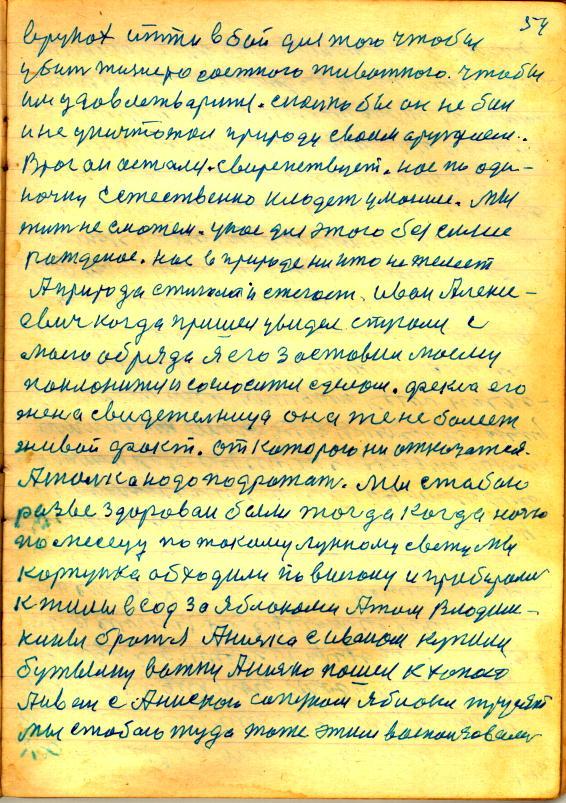 54
в руках итти в бой для того чтобы
убит жизнерадостного животного. чтобы
им удовлетварит. сколько бы он не бил
и не уничтожал природу своим аружием.
Враг он астал. свирепствует. нас по оди-
ночку Естественно кладет умение. Мы
жит не сможем. у нас для этого бессилие
рождение. нас в природе никто не жалеет
А природа стигала и стегает. Иван Алекс-
евич когда пришел увидел ступали с
моего обряда Я его заставил моему
поклонится согласится сделал. Фекла его
жена свидетельница она же не болеет
живой факт. от которого ни откажатся.
А только надо подражат. Мы с табою
разве здороваи были тогда когда ночю
по месецу по такому лунному свету мы
кортупка обходили по выгону и прибирали
к жилы в сад за Яблоками А там Владим-
кины братя Анияка с иваном купили
бутылку вотки Анияко пошел к хопаю
А иван с Аниской сапуном Яблоки трусят
Мы с табаю туда тоже этим васпользовалис